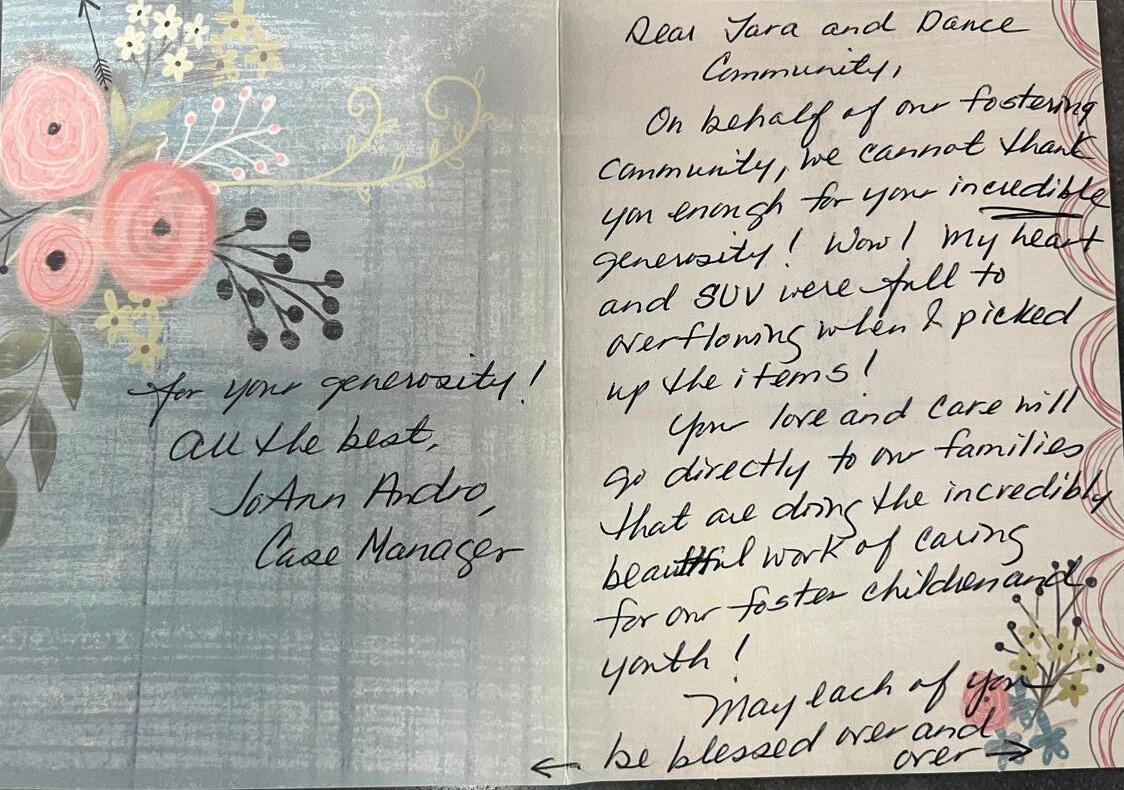 Dear Tara and Dance
Community,
On behalf of our fostering
community, we cannot thank
you enough for your incredible
generosity! Wow! My heart
and SUV were full to
overflowing when I picked
up the items!
Your love and care will
go directly to our families
that are doing the incredibly
beautiful work of caring
for our foster children and
youth!
May each of you
be blessed over and
over →
←
for your generosity!
All the best,
JoAnn Andro,
Case Manager